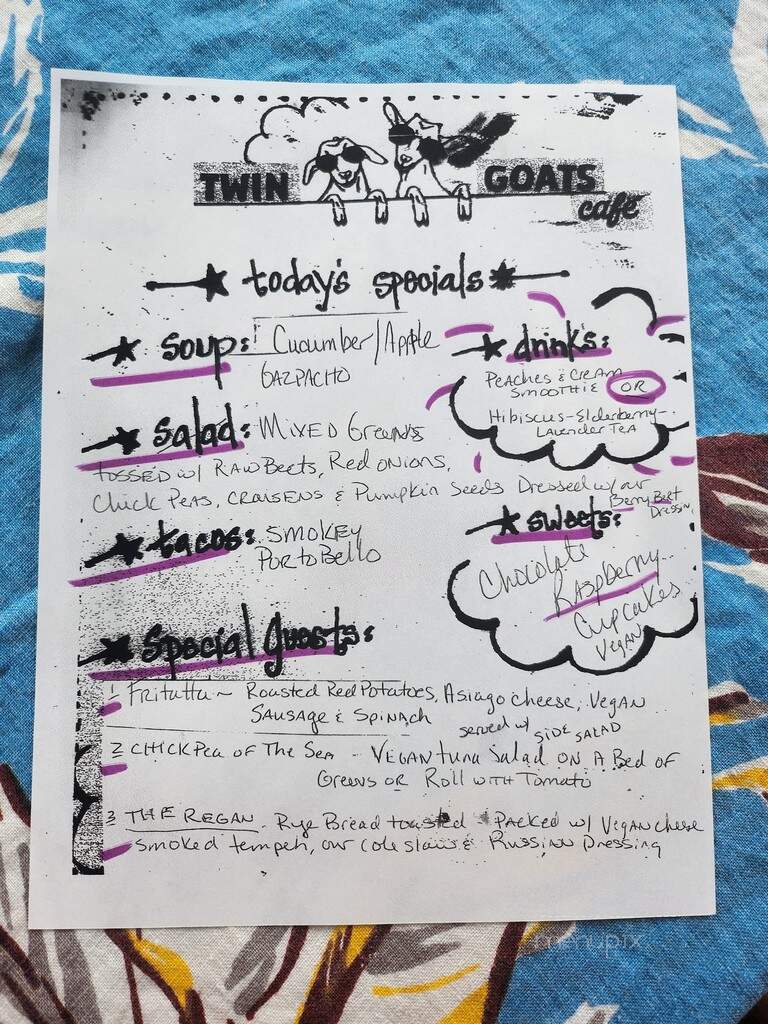 TWIN GOATS
café
today's specials
soup: Cucumber/Apple
GAZPACHO
drinks:
PEACHES & CREAM
SMOOTHIE OR
Hibiscus-Elderberry-
LAVENDER TEA
salad: MIXED Greens
TOSSED w/ RAW Beets, Red onions,
Chick Peas, CRAISENS & Pumpkin Seeds Dressed w/ our
Berry Beet
Dressin
tacos: SMOKEY
PORTOBELLO
sweets:
Chocolate
RASpberry
Cupcakes
VEGAN
Special guests:
1 FRITATTA ~ Roasted Red Potatoes, Asiago cheese, Vegan
SAUSAGE & SPINACH
served w/ SIDE SALAD
2 CHICKPea of The Sea - VEGAN tuna Salad ON A Bed of
Greens OR Roll WITH Tomato
3 THE REGAN. Rye Bread toasted & PACKED w/ Vegan cheese
smoked tempeh, our cole slaw & RUSSIAN Dressing
menupix